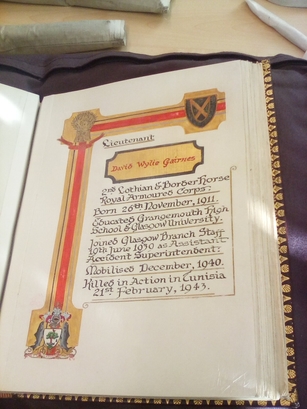 Lieutenant
David Wylie Gairnes
2nd Lothian & Border Horse
Royal Armoured Corps.
Born 26th November, 1911.
Educated Grangemouth High
School & Glasgow University.
Joined Glasgow Branch Staff
10th June 1930 as Assistant
Accident Superintendent.
Mobilised December, 1940.
Killed in Action in Tunisia
21st February, 1943.